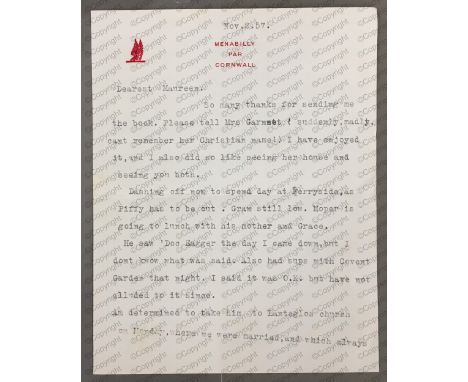 Nov.2.57.
MENABILLY
PAR
CORNWALL
Dearest Maureen.
So many thanks for sending me
the book. Please tell Mrs ( suddenly,madly,
cant remember her Christian name!) I have enjoyed
it,and I also did so like seeing her house and
seeing you both.
Danning off now to spend day at Ferryside,as
Piffy has to be out . Graw still low. Moper is
going to lunch with his mother and Grace.
He saw 'Doc the day I came down,but I
dont know what was said. Also had sups with Covent
Garden that night. I said it was O.K. but have not
alluded to it since.
Am determined to take him to Lanteglos church
on Monday,where we were married,and which always